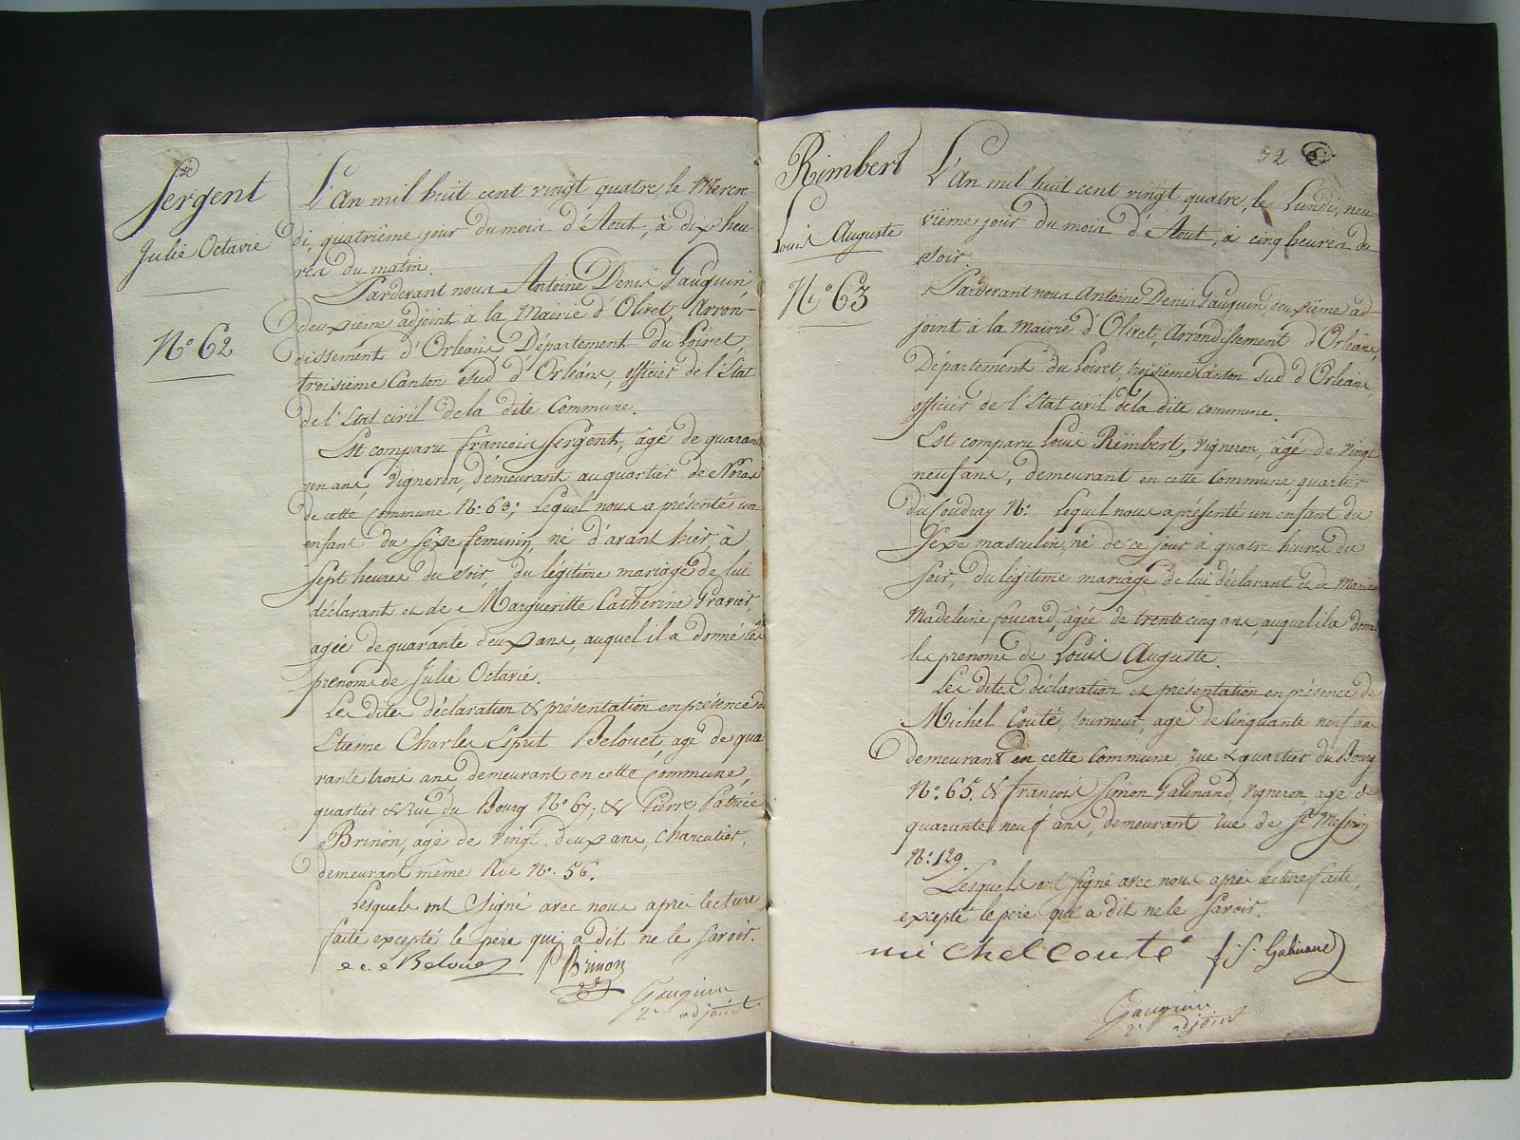 Sergent
Julie Octavie
N.° 62
L'An mil huit cent vingt quatre, le Mercre
di, quatrième jour du mois d'Aout, à dix heu
res du matin.
Pardevant nous Antoine Denis Gauguin
deuxième adjoint à la Mairie d'Olivet, Arron-
dissement d'Orleans, Département du Loiret,
troisième Canton Sud d'Orléans, officier de l'Etat
de l'Etat civil de la dite Commune.
Est comparu françois Sergent, âgé de quarante
un ans, Vigneron, demeurant au quartier de Noras
de cette Commune N.° 63; Lequel nous a présenté un
enfant du Sexe feminin, né d'avant hier, à
Sept heures du Soir, du légitime mariage de lui
déclarant et de Margueritte Catherine Gravier,
agée de quarante deux ans, auquel il a donné les
prenoms de Julie Octavie.
Les dites déclaration & présentation en présence de
Etienne Charles Belouet, agé de qua
rante trois ans demeurant en cette Commune,
quartier & rue du Bourg N.° 67; & Pierre Patrice
Brinon, agé de vingt deux ans, Charcutier,
demeurant même Rue N.° 56.
Lesquels ont signé avec nous après lecture
faite excepté le père qui a dit ne le savoir.
e. c. e Belouet P Brinon
Gauguin
2.e adjoint
52
Rimbert
Louis Auguste
N.° 63
L'An mil huit cent vingt quatre, le Lundi, neu
vième jour du mois d'Aout, à cinq heures du
Soir
Pardevant nous Antoine Denis Gauguin, deuxième ad-
joint à la Mairie d'Olivet, Arrondissement d'Orléans,
Département du Loiret, troisième Canton Sud d'Orléans,
officier de l'Etat civil de la dite commune.
Est comparu Louis Rimbert, vigneron, âgé de vingt
neuf ans, demeurant en cette Commune, quartier
du Coudray N.° Lequel nous a présenté un enfant du
Sexe masculin, né de ce jour à quatre heures du
Soir, du légitime mariage de lui déclarant et de Marie
Madeleine foucard, agée de trente cinq ans, auquel il a donné
les prenoms de Louis Auguste.
Les dites déclaration et présentation en présence de
Michel Couté, tourneur, agé de Cinquante neuf ans
demeurant en cette Commune rue & quartier du Bourg
N.° 65. & françois Simon Galinand, Vigneron agé de
quarante neuf ans, demeurant rue de St. Mesmin
N.° 129
Lesquels ont signé avec nous après lecture faite,
excepté le père qui a dit ne le savoir.
michel couté f. S. Galinand
Gauguin
2.e adjoint